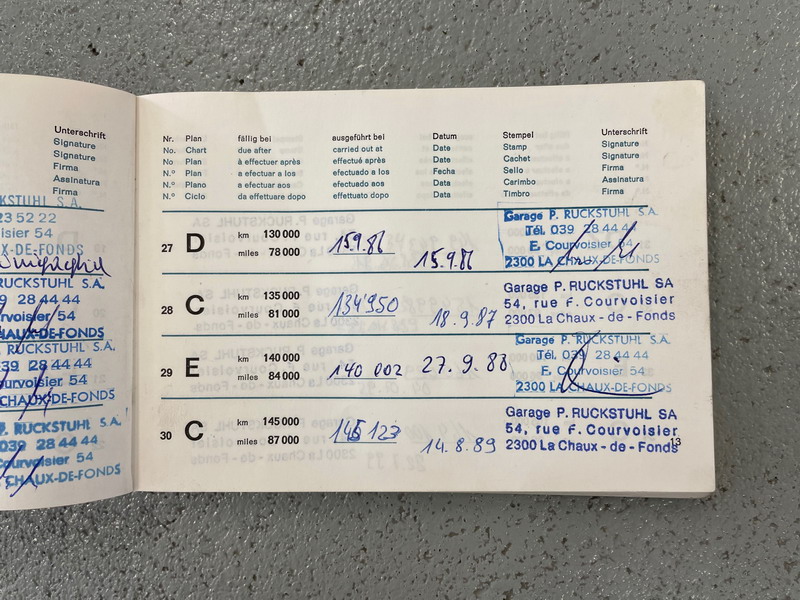 Unterschrift
Signature
Signature
Firma
Assinatura
Firma
KSTUHL S.A.
23 52 22
isier 54
X-DE-FONDS
RUCKSTUHL S.A.
9 28 44 44
rvoisier 54
HAUX-DE-FONDS
RUCKSTUHL S.A.
39 28 44 44
urvoisier 54
CHAUX-DE-FONDS
P. RUCKSTUHL S.A.
039 28 44 44
Courvoisier 54
CHAUX-DE-FONDS
Nr. Plan fällig bei ausgeführt bei Datum Stempel Unterschrift
No. Chart due after carried out at Date Stamp Signature
No Plan à effectuer après effectué après Date Cachet Signature
N.º Plan a efectuar a los efectuado a los Fecha Sello Firma
N.º Plano a efectuar aos efectuado aos Data Carimbo Assinatura
N.º Ciclo da effettuare dopo effettuato dopo Data Timbro Firma
27 D km 130 000 miles 78 000 15.9.86 15.9.86
Garage P. RUCKSTUHL S.A.
Tél. 039 28 44 44
E. Courvoisier 54
2300 LA CHAUX-DE-FONDS
28 C km 135 000 miles 81 000 134'950 18.9.87
Garage P. RUCKSTUHL SA
54, rue F. Courvoisier
2300 La Chaux-de-Fonds
29 E km 140 000 miles 84 000 140 002 27.9.88
Garage P. RUCKSTUHL S.A.
Tél. 039 28 44 44
E. Courvoisier 54
2300 LA CHAUX-DE-FONDS
30 C km 145 000 miles 87 000 145 123 14.8.89
Garage P. RUCKSTUHL SA
54, rue F. Courvoisier
2300 La Chaux-de-Fonds
13